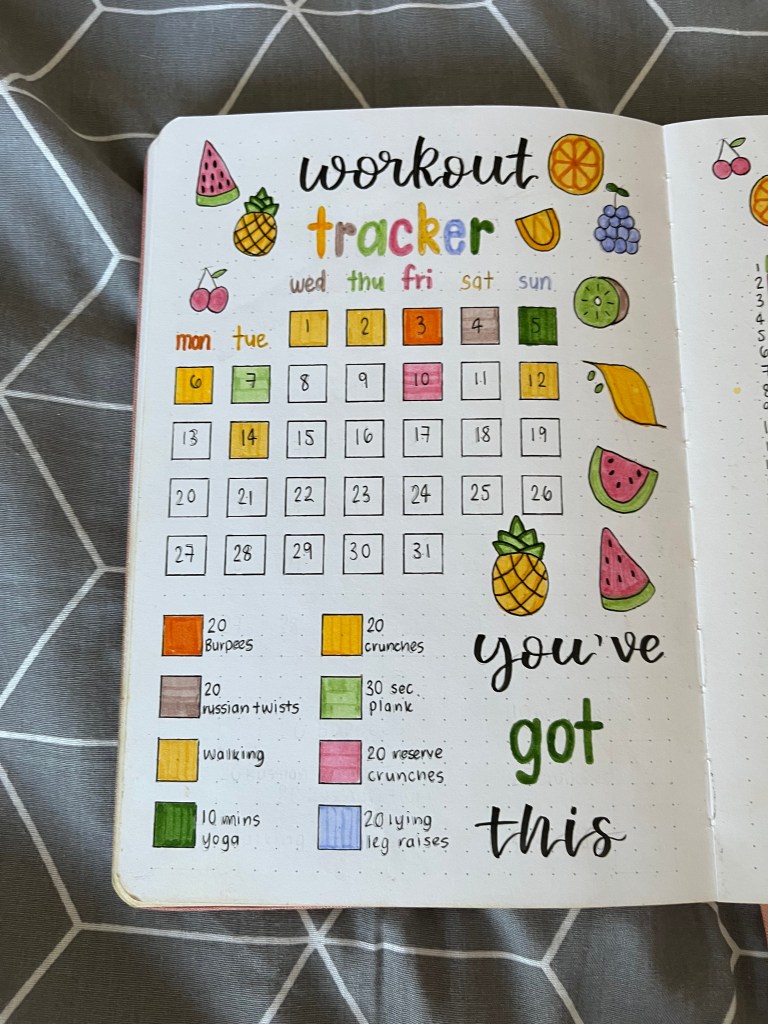 workout
tracker
wed thu fri sat sun
mon tue
1 2 3 4 5
6 7 8 9 10 11 12
13 14 15 16 17 18 19
20 21 22 23 24 25 26
27 28 29 30 31
20
Burpees
20
crunches
20
russian twists
30 sec
plank
walking
20 reserve
crunches
10 mins
yoga
20 lying
leg raises
you've
got
this
1
2
3
4
5
6
7
8